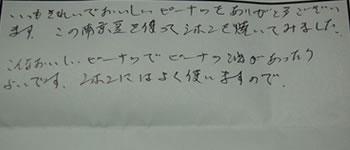 いつもきれいでおいしいピーナツをありがとうござい
ます。この南京豆を使ってシホンを焼いてみました。
こんなおいしいピーナツでピーナツ油があったり
よいです。シホンにはよく使いますので。